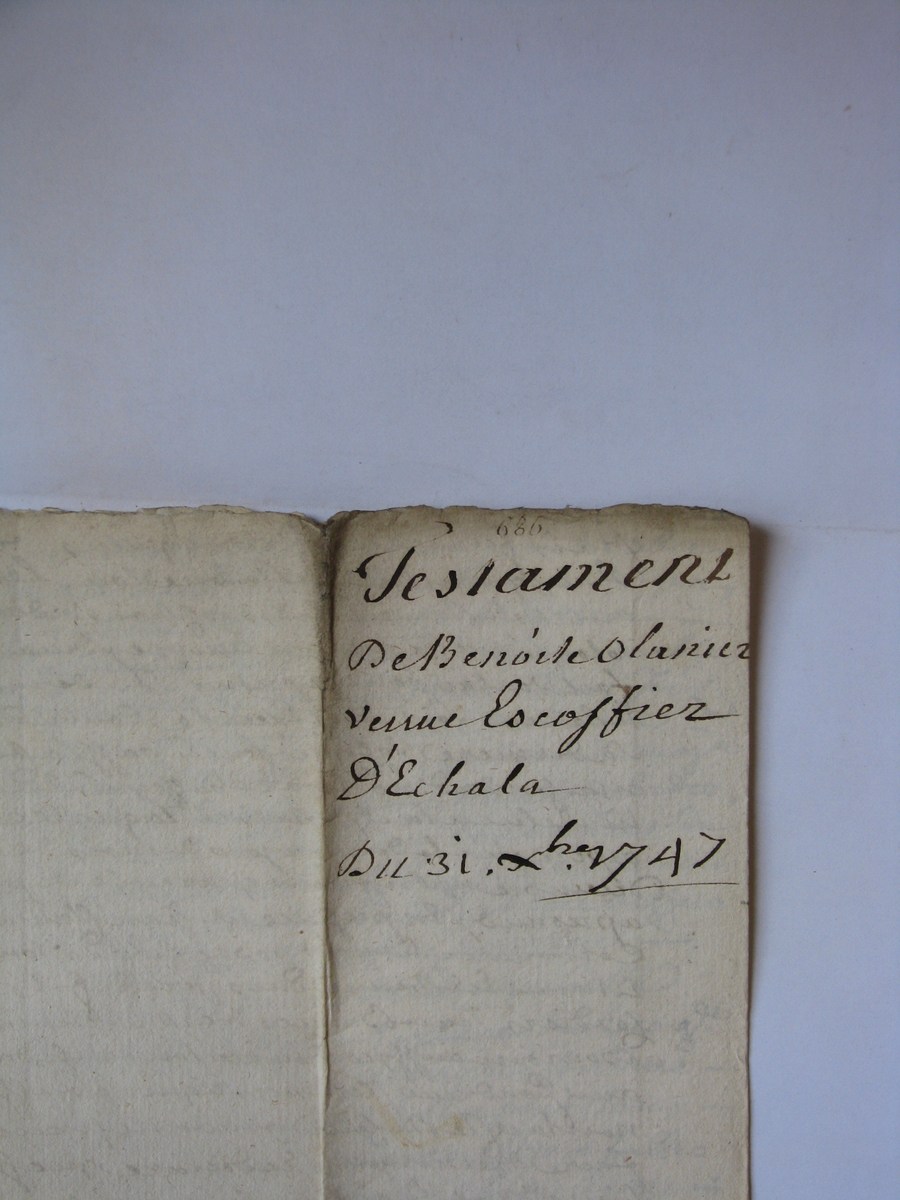 686
Testament
De Benoite Olanier
veuue Escoffier
D'Echala
Du 31. Xbre. 1747